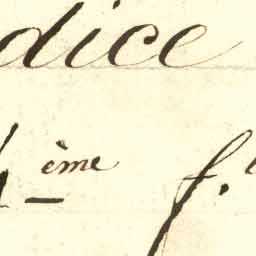 dice
ème f.